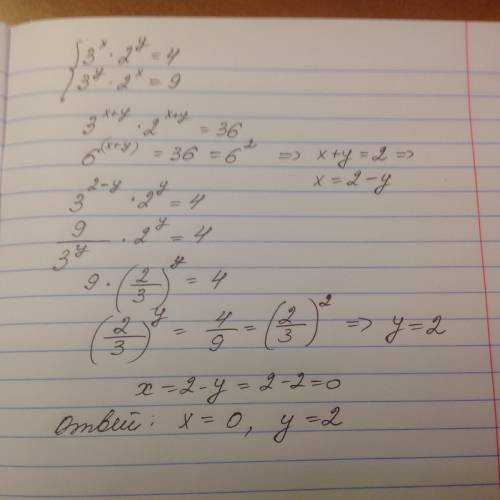 { 3^x · 2^y = 4
3^y · 2^x = 9
3^(x+y) · 2^(x+y) = 36
6^(x+y) = 36 = 6^2 => x+y=2 =>
x=2-y
3^(2-y) · 2^y = 4
9/3^y · 2^y = 4
9 · (2/3)^y = 4
(2/3)^y = 4/9 = (2/3)^2 => y=2
x=2-y=2-2=0
Ответ: x=0, y=2